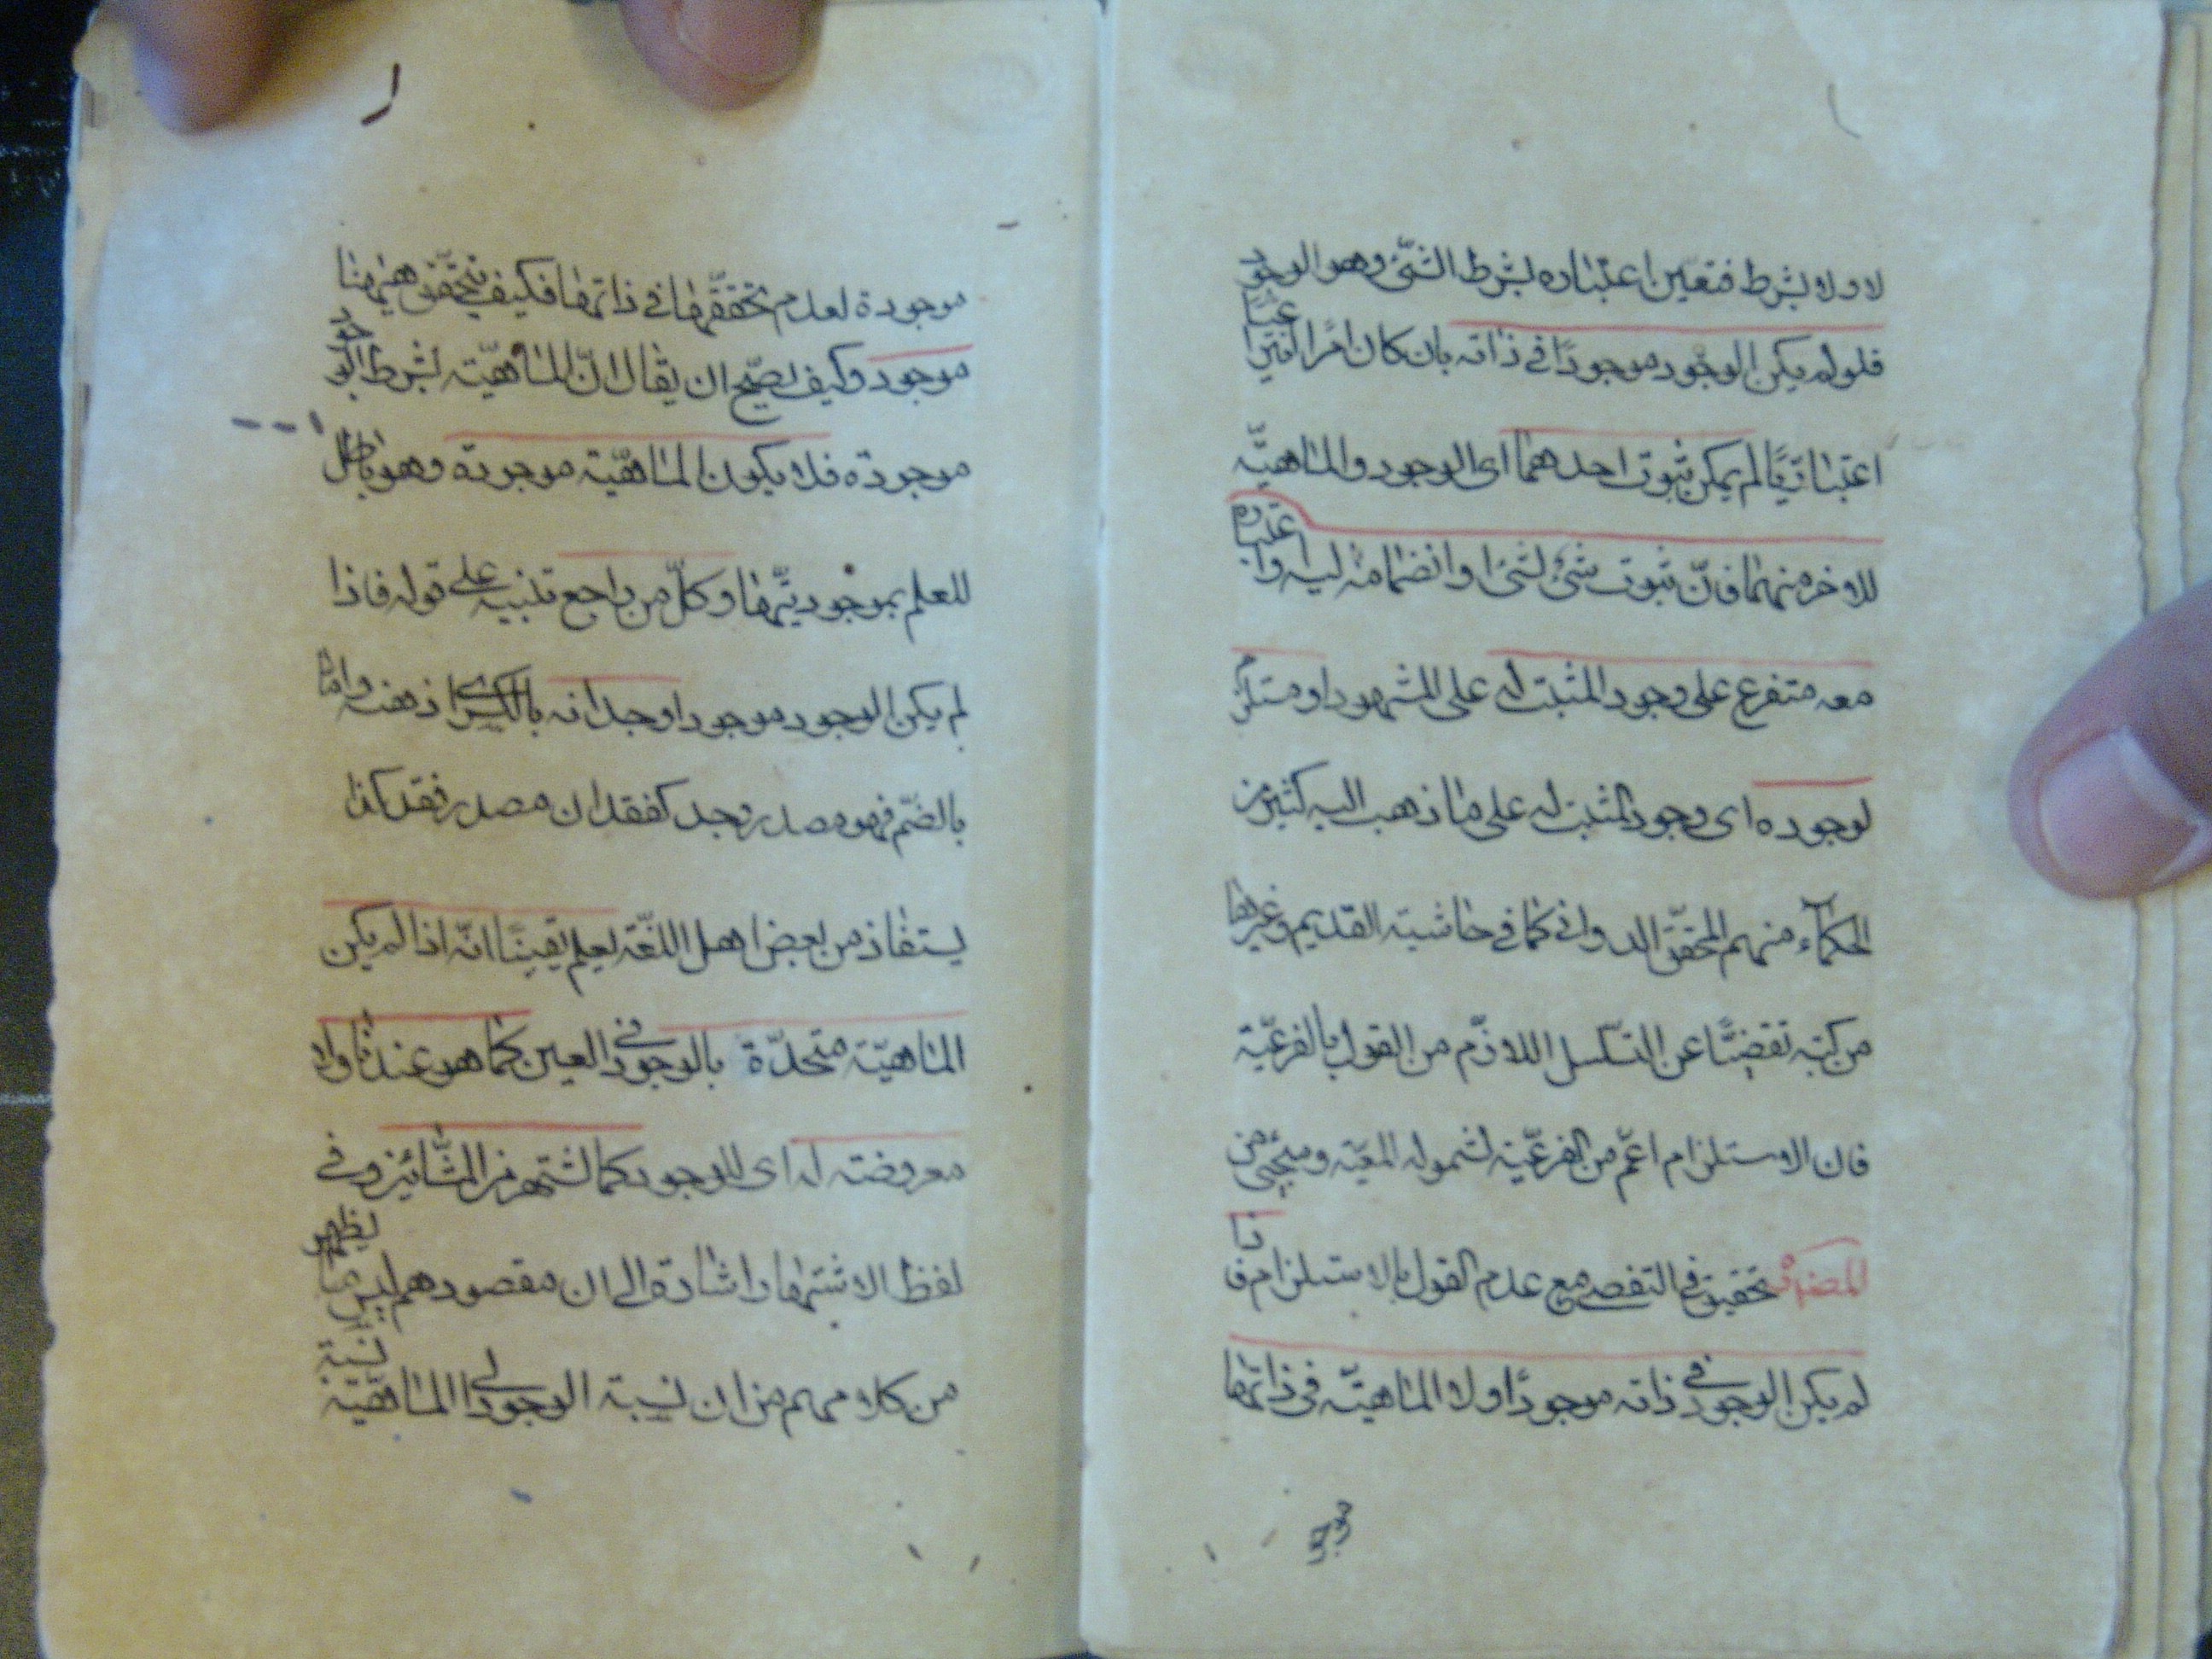 لا ولا بشرط فتعين اعتباره بشرط الشئ وهو الوجود
فلو لم يكن الوجود موجودًا في ذاته بان كان امرًا
اعتباريًا لم يمكن ثبوت احدهما اى الوجود والماهيّة
للاخر منهما فانّ ثبوت شئ لشئ او انضمامه اليه واعتباره
معه متفرع على وجود المثبت له على المشهور او مستلزم
لوجوده اى وجود المثبت له على ما ذهب اليه كثير من
الحكماء منهم المحقق الدوانى كما في حاشيته القديم وغيرها
من كتبه تفصيًا عن التسلسل اللازم من القول بالفرعيّة
فان الاستلزام اعمّ من الفرعيّة لشموله المعيّة وسيجئ من
المصنف تحقيق في التفصى مع عدم القول بالاستلزام فاذا
لم يكن الوجود في ذاته موجودًا ولا الماهيّة في ذاتها
موجودة لعدم تحققها في ذاتها فكيف يتحقق ههنا
موجود وكيف يصحّ ان يقال انّ الماهيّة بشرط الوجود
موجودة فلا يكون الماهيّة موجودة وهو باطل
للعلم بموجوديّتها وكلّ من راجع تنبيه على قوله فاذا
لم يكن الوجود موجودا وجدانه بالكسر اى ذهنه واما
بالضمّ فهو مصدر وجد كفقدان مصدر فقد كذا
يستفاد من بعض اهل اللغة يعلم يقينًا انّه اذا لم يكن
الماهيّة متحدّة بالوجود في العين كما هو عندنا ولا
معروضته له اى للوجود كما اشتهر من المشّائين وفي
لفظ الاشتهار اشارة الى ان مقصودهم ليس ما يظهر
من كلامهم من ان نسبة الوجود الى الماهيّة نسبة